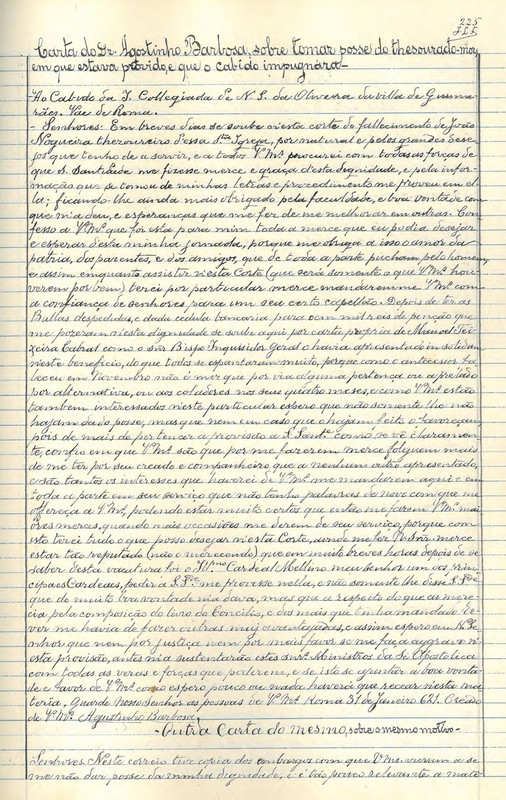 225
Carta do Dr. Agostinho Barbosa, sobre tomar posse do thesourado-mor,
em que estava provido, e que o cabido impugnára-
Ao Cabido da I. Collegiada de N. S. da Oliveira da villa de Guima-
rães. Vae de Roma.
- Senhores: Em breves dias se soube n'esta corte do fallecimento de João
Nogueira thezoureiro d'essa Sta Igreja, por natural e pelos grandes dese-
jos que tenho de a servir, e a todos Vas Mces procurei com todas as forças de
que S. Santidade me fizesse merce e graça desta dignidade, e pela infor-
mação que se tomou de minhas letras e procedimento me proveu em el-
la; ficando-lhe ainda mais obrigado pela facuidade, e boa vontade com
que m'a deu, e esperanças que me fez de me melhorar em outras. Con-
fesso a Vas Mces que foi esta para mim toda a merce que eu podia desejar
e esperar d'esta minha jornada, porque me obriga a isso o amor da
patria, dos parentes, e dos amigos, que de toda a parte pucham pelo homem,
e assim emquanto assistir n'esta Corte (que será somente o que Vas Mces hou-
verem por bem) terei por particular merce mandarem-me Vas Mces com
a confiança de senhores para um seu certo capellão. Depois de ter as
Bullas despedidas, e dada cedula bancaria para cem mil reis de penção que
me pozeram n'esta dignidade se soube aqui por carta propria de Manoel Tei-
xeira Cabral como o snr Bispo Inquisidor Geral o havia apresentado in solidum
n'este beneficio, do que todos se espantaram muito, porque como o antecessor fa-
leceu em Novembro não é mez que por via alguma pertença ou a prelado
por alternativa, ou aos coladores nos seus quatro mezes, e como Vas Mces estão
tambem interessados n'este particular espero que não somente lhe não
hajam dado posse, mas que nem em caso que o hajam feito o favoreçam
pois de mais de pertencer a provisão a S. Sante como se vê claramen-
te, confio em que Vas Mces são que por me fazerem merce folguem mais
de me ter por seu creado e companheiro que a nenhum outro apresentado,
e são tantos os interesses que haverei de Vas Mces me mandarem aqui e em
toda a parte em seu serviço que não tenho palavras de novo com que me
offereça a Vas Mces, podendo estar muito certos que então me fazem Vas Mces mai-
ores merces, quando mais occasiões me derem de seu serviço, porque com
isto terei tudo o que posso desejar n'esta Corte, aonde me fez N. Snr merce
estar tão reputado (não o merecendo) que em muito breves horas depois de se
saber desta vacatura foi o Illmo Cardeal Mellino meu senhor um dos prin-
cipaes Cardeaes, pedir a S. Sde me provesse nella, e não somente lhe disse S. Sde
que de muito boa vontade m'a dava, mas que a respeito do que eu mere-
cia pela composição do livro do Concilio, e dos mais que tinha mandado
ver me havia de fazer outras mui avantajadas, e assim espero em N. Se-
nhor que nem por justiça nem por mais favor se me faça aggravo n'
esta provisão, antes m'a sustentarão estes snrs Ministros da Sé Apostolica
com todas as veras e forças que poderem, e se isto se ajuntar a boa vonta-
de e favor de Vas Mces como espero pouco ou nada haverá que recear n'esta ma-
teria. Guarde Nosso Senhor as pessoas de Vas Mces. Roma 31 de Janeiro 621. Creado
de Vas Mces Agustinho Barbosa.
-Outra Carta do Mesmo, sobre o mesmo motivo-
Senhores. N'este correio tive copia dos embargos com que Vas Ms. vieram a se
me não dar posse da minha dignidade, e é tão pouco relevante a mate-